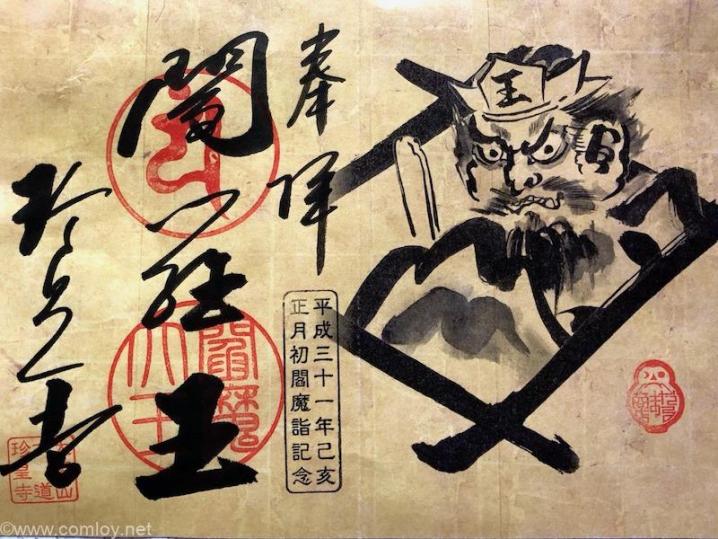 奉拝
閻羅王
珍皇寺
平成三十一年己亥
正月初閻魔詣記念
閻魔
大王
六道
珍皇寺
王
©www.comloy.net